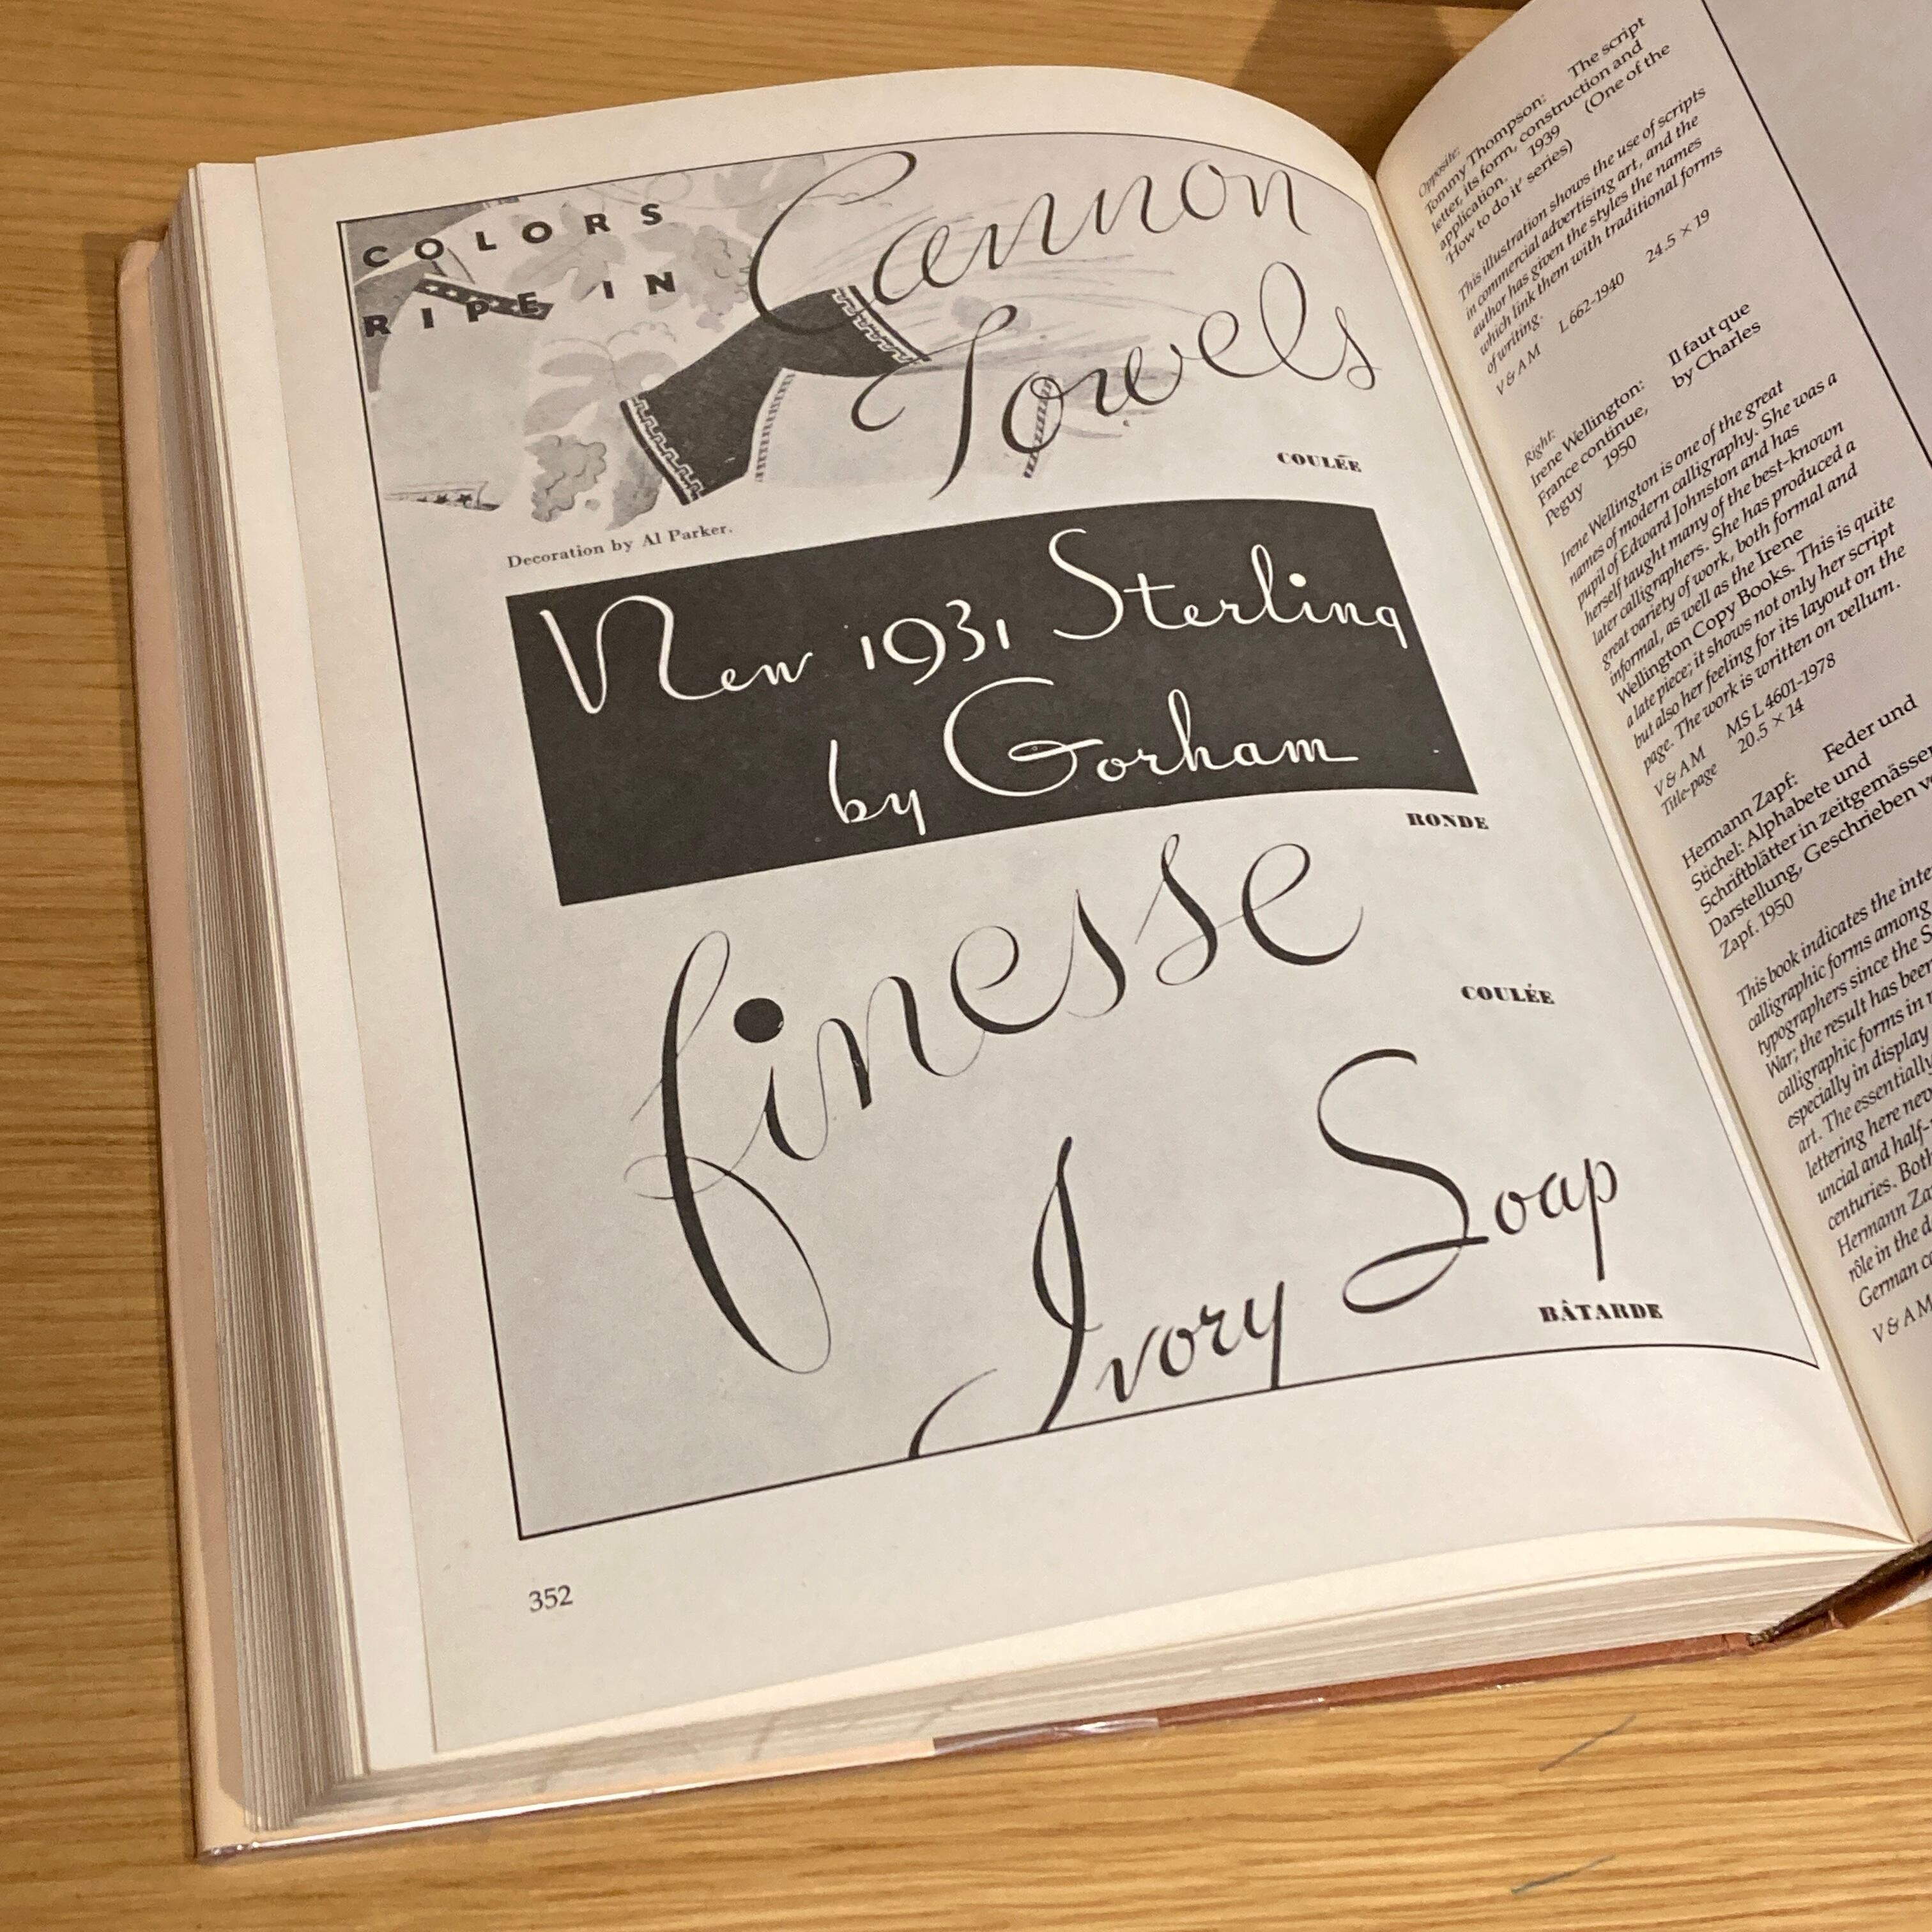 COLORS
RIPE IN
Cannon
Towels
COULÉE
Decoration by Al Parker.
New 1931 Sterling
by Gorham
RONDE
finesse
COULÉE
Ivory Soap
BÂTARDE
352
Opposite:
Tommy Thompson: The script
letter, its form, construction and
application. 1939 (One of the
'How to do it' series)
This illustration shows the use of scripts
in commercial advertising art, and the
author has given the styles the names
which link them with traditional forms
of writing.
V & A M L 662-1940 24.5 × 19
Right:
Irene Wellington: Il faut que
France continue, by Charles
Peguy 1950
Irene Wellington is one of the great
names of modern calligraphy. She was a
pupil of Edward Johnston and has
herself taught many of the best-known
later calligraphers. She has produced a
great variety of work, both formal and
informal, as well as the Irene
Wellington Copy Books. This is quite
a late piece; it shows not only her script
but also her feeling for its layout on the
page. The work is written on vellum.
V & A M MS L 4601-1978
Title-page 20.5 × 14
Hermann Zapf: Feder und
Stichel: Alphabete und
Schriftblätter in zeitgemässer
Darstellung, Geschrieben
Zapf. 1950
This book indicates the
calligraphic forms among
typographers since the
War; the result has been
calligraphic forms in
especially in display
art. The essentially
lettering here
uncial and half-
centuries. Both
Hermann
rôle in the
German
V & A M